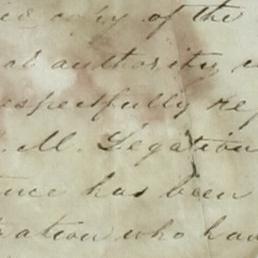 copy of the
al authority
espectfully
M. Legation
has been
ration who hav